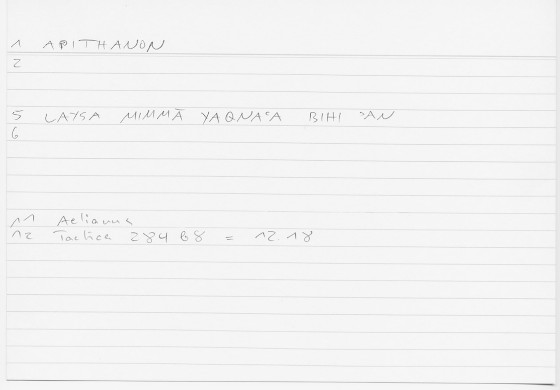 1 APITHANON
2
5 LAYSA MIMMĀ YAQNAʿA BIHI ʾAN
6
11 Aelianus
12 Tactica 284 B8 = 12.18